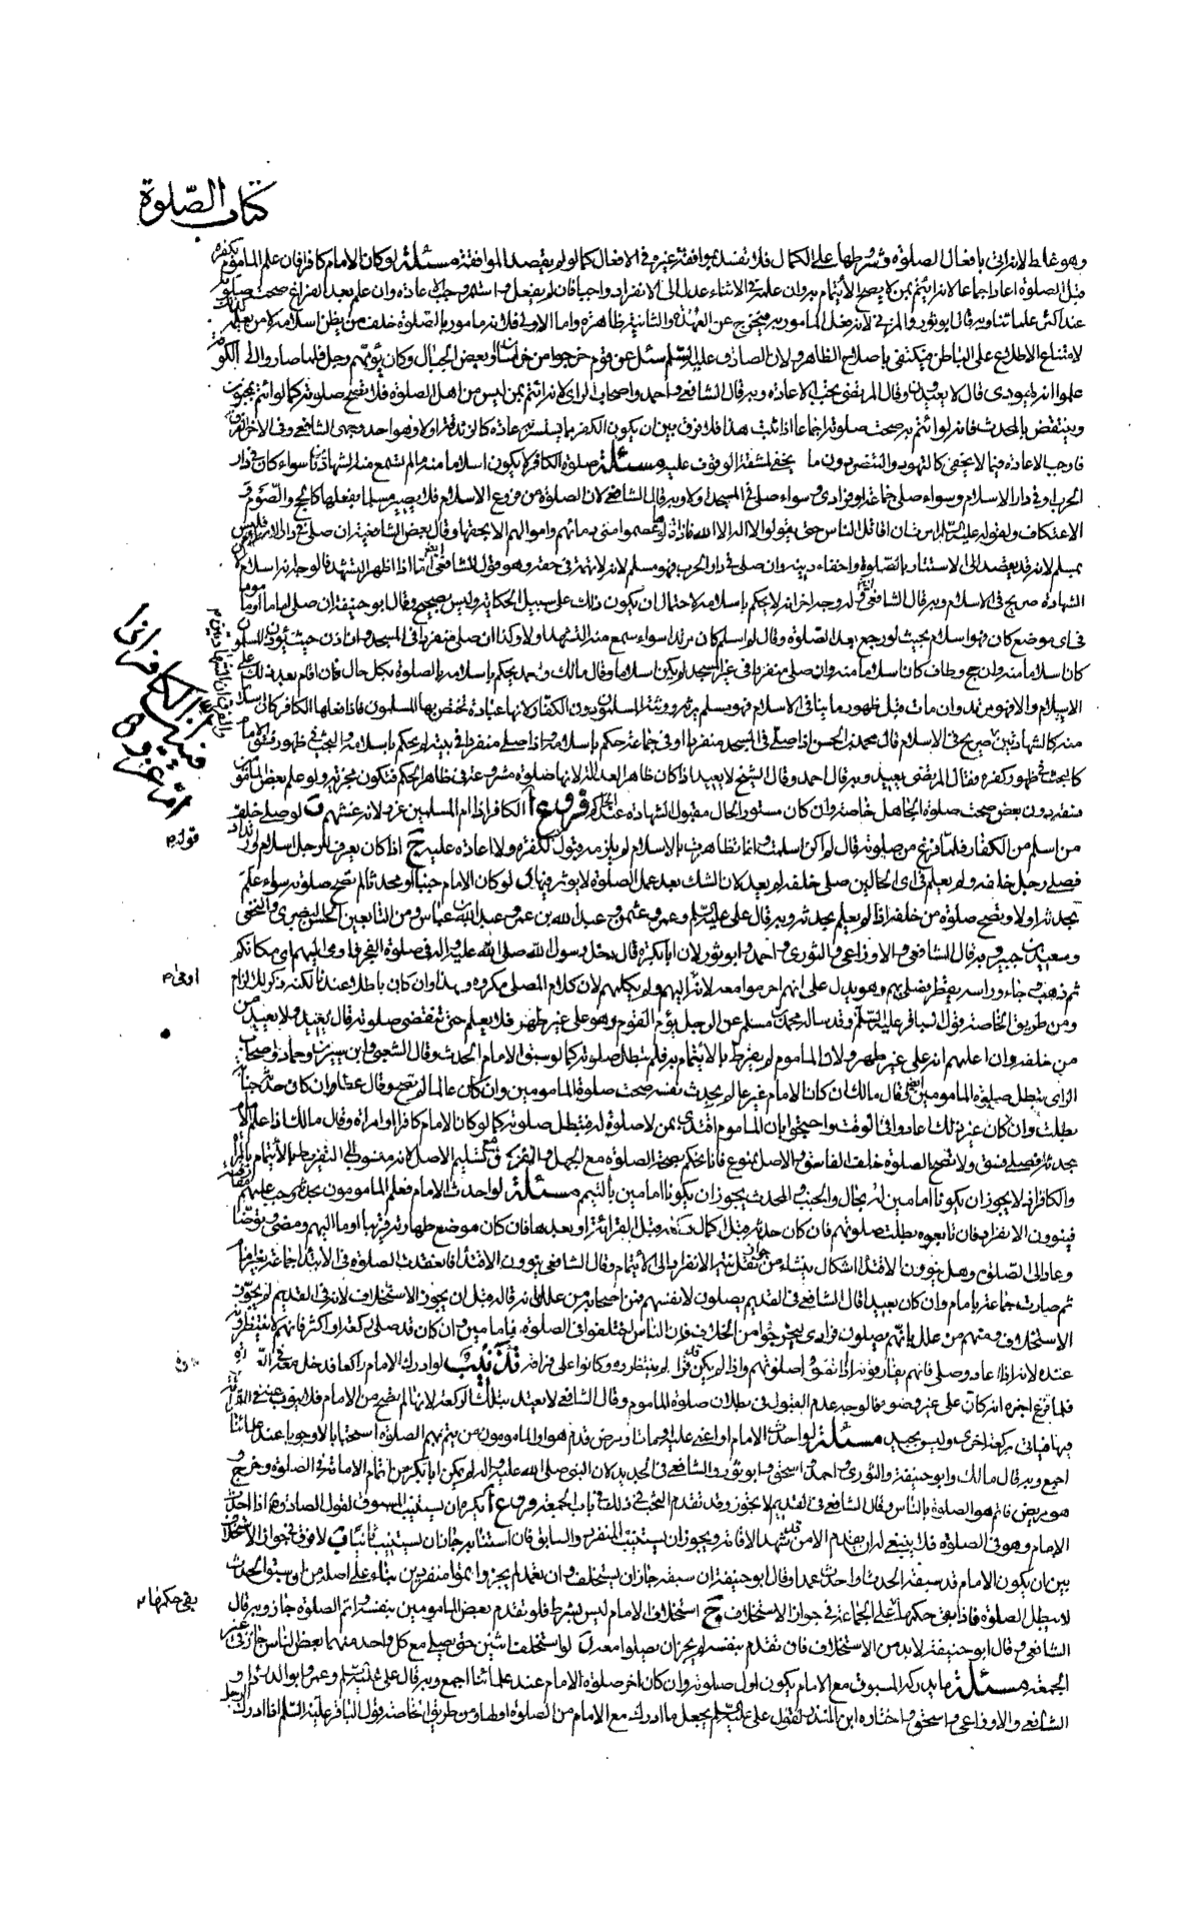 كتاب الصّلوة
وهو غلط لانه اتى بافعال الصلوة وشروطها على الكمال فلا تفسد بموافقة غيره في الافعال كما لو لم يقصد الموافقة مسئلة لو كان الامام كافرا فان علم الماموم بكفره
قبل الصلوة اعاد اجماعا لانه ائتم بمن لا يصح الائتمام به وان علم في الاثناء عدل الى الانفراد واجبا فان لم يفعل واستمر وجب الاعادة وان علم بعد الفراغ صحت صلوته
عند اكثر علمائنا وبه قال ابو ثور والمزني لانه فعل المامور به فيخرج عن العهدة والثانية ظاهرة واما الاولى فلانه مامور بالصلوة خلف من يظن اسلامه لا من يعلم
لامتناع الاطلاع على الباطن فيكتفى باصلاح الظاهر ولان الصادق عليه السلم سئل عن قوم خرجوا من خراسان او بعض الجبال وكان يؤمهم رجل فلما صاروا الى الكوفة
علموا انه يهودي قال لا يعيدون وقال المرتضى يجب الاعادة وبه قال الشافعي واحمد واصحاب الراى لانه ائتم بمن ليس من اهل الصلوة فلا تصح صلوته كما لو ائتم بمجنون
وينتقض بالمحدث فانه لو ائتم به صحت صلوته اجماعا اذا ثبت هذا فلا فرق بين ان يكون الكفر مما يستسر به عادة كالزندقة او لا وهو احد وجهي الشافعي وفي الاخر الفرق
فاوجب الاعادة فيما لا يخفى كالتهود والتنصر دون ما يخفى لمشقة الوقوف عليه مسئلة صلوة الكافر لا يكون اسلاما منه ما لم تسمع منه الشهادتان سواء كان في دار
الحرب او في دار الاسلام وسواء صلى جماعة او فرادى وسواء صلى في المسجد او لا وبه قال الشافعي لان الصلوة من فروع الاسلام فلا يصير مسلما بفعلها كالحج والصّوم و
الاعتكاف ولقوله عليه السلم امرت ان اقاتل الناس حتى يقولوا لا اله الا الله فاذا قالوها عصموا مني دمائهم واموالهم الا بحقها وقال بعض الشافعية ان صلى في دار الاسلام فليس
بمسلم لانه قد يقصد الاستتار بالصلوة واخفاء دينه وان صلى في دار الحرب فهو مسلم لانه لا تهمة في حقه وهو قول الشافعي ايضا اما اذا اظهر التشهد فالوجه انه اسلام لان
الشهادة صريح في الاسلام وبه قال الشافعي وله وجه اخر انه لا يحكم باسلامه لاحتمال ان يكون ذلك على سبيل الحكاية وليس بصحيح وقال ابو حنيفة ان صلى اماما او ماموما
في اى موضع كان فهو اسلام بحيث لو رجع بعد الصلوة وقال لم اسلم كان مرتدا سواء سمع منه التشهد او لا وكذا ان صلى منفردا في المسجد وان اذن حيث يؤذن المسلمون
كان اسلاما منه وان حج وطاف كان اسلاما منه وان صلى منفردا في غير المسجد لم يكن اسلاما وقال مالك واحمد يحكم باسلامه بالصلوة بكل حال فان اقام بعد ذلك على
الاسلام والا فهو مرتد وان مات قبل ظهور ما ينافي الاسلام فهو مسلم يرثه ورثته المسلمون دون الكفار لانها عبادة تختص بها المسلمون فاذا فعلها الكافر كان اسلاما
منه كالشهادتين
صريح في الاسلام قال محمد بن الحسن اذا صلى في المسجد منفردا او في جماعة حكم باسلامه واذا صلى منفردا في بيته لم يحكم باسلامه والبحث في ظهور فسق الامام
كالبحث في ظهور كفره فقال المرتضى يعيد وبه قال احمد وقال الشيخ لا يعيد اذا كان ظاهره العدالة لانها صلوة مشروعة في ظاهر الحكم فتكون مجزئة ولو علم بعض المامومين
فسقه دون بعض صحت صلوة الجاهل خاصة وان كان مستور الحال مقبول الشهادة عند الحاكم فروع آ الكافر اذا ام المسلمين عزر لانه غشهم ب لو صلى خلف
من اسلم من الكفار فلما فرغ من صلوته قال لم اكن اسلمت وانما تظاهرت بالاسلام لم يلزمه قبول كفره ولا اعادة عليه ج اذا كان يعرف لرجل اسلام وارتداد
فصلى رجل خلفه ولم يعلم في اى الحالين صلى خلفه لم يعد لان الشك بعد عمل الصلوة لا يؤثر فيها د لو كان الامام جنبا او محدثا لم تصح صلوته سواء علم
بحدثه او لا وتصح صلوة من خلفه اذا لم يعلم بحدثه وبه قال على عليه السلم وعمر وعثمن وعبد الله بن عمر وعبد الله بن عباس ومن التابعين الحسن البصري والنخعي
وسعيد بن جبير وبه قال الشافعي والاوزاعي والثوري واحمد وابو ثور لان ابا بكرة قال دخل رسول الله صلى الله عليه واله في صلوة الفجر فاومى اليهم اى مكانكم
ثم ذهب وجاء وراسه يقطر فصلى بهم وهو يدل على انهم احرموا معه لانه اومى اليهم ولم يكلمهم لان كلام المصلى مكروه وهذا وان كان باطلا عندنا لكنه ذكر للالزام
ومن طريق الخاصة قول الباقر عليه السلم وقد ساله محمد بن مسلم عن الرجل يؤم القوم وهو على غير طهر فلا يعلم حتى تنقضي صلوته قال يعيد ولا يعيد من
من خلفه وان اعلمهم انه على غير طهر ولان الماموم لم يفرط بالائتمام به فلم تبطل صلوته كما لو سبق الامام الحدث وقال الشعبي وابن سيرين وحماد واصحاب
الراى تبطل صلوة المامومين ايضا وقال مالك ان كان الامام غير عالم بحدث نفسه صحت صلوة المامومين وان كان عالما لم تصح وقال عطا وان كان حدثه جنابة
بطلت وان كان غير ذلك اعادوا في الوقت واحتجوا بان الماموم اقتدى بمن لا صلوة له فتبطل صلوته كما لو كان الامام كافرا او امراة وقال مالك اذا علم الامام
بحدثه فصلى فسق ولا تصح الصلوة خلف الفاسق والاصل ممنوع فانا نحكم بصحة الصلوة مع الجهل والفرق مع تسليم الاصل لانه منسوب الى التفريط بالائتمام بالمراة
والكافر اذ لا يجوز ان يكونا امامين للرجال والجنب والمحدث يجوز ان يكونا امامين بالتيمم مسئلة لو احدث الامام فعلم المامومون بحدثه وجب عليهم مفارقته
فينوون الانفراد فان تابعوه بطلت صلوتهم فان كان حدثه قبل اكمال ركعة قبل القرائة او بعدها فان كان موضع طهارته قريبا اوما اليهم ومضى وتوضا
وعاد الى الصلوة وهل ينوون الاقتدا اشكال ينشاء من جواز نقل نية الانفراد الى الائتمام وقال الشافعي ينوون الاقتدا فانعقدت الصلوة في الابتدا جماعة بغير امام
ثم صارت جماعة بامام وان كان بعيدا قال الشافعي في القديم يصلون لانفسهم فمن اصحابه من علل انه قاله قبل ان يجوز الاستخلاف لانه في القديم لم يجوز
الاستخلاف ومنهم من علل بانهم يصلون فرادى ليخرجوا من الخلاف فان الناس اختلفوا في الصلوة بامامين وان كان قد صلى ركعة او اكثر فانهم لا ينتظرونه
عنده لانه اذا عاد وصلى فانهم يفارقونه اذا اتموا صلوتهم واذا لم يكن قد قرا لم ينتظروه وكانوا على فراقه تذنيب لو ادرك الامام راكعا فدخل معه في الثالثة
فلما فرغ اخبره انه كان على غير وضوء فالوجه عدم القبول في بطلان صلوة الماموم وقال الشافعي لا يعتد بتلك الركعة لانها لم تصح من الامام فلا ينوب عنه في القرائة
فيها فياتى بركعة اخرى وليس بجيد مسئلة لو احدث الامام او اغمى عليه او مات او مرض قدم هو او المامومون من يتم بهم الصلوة استحبابا لا وجوبا عند علمائنا
اجمع وبه قال مالك وابو حنيفة والثوري واحمد واسحق وابو ثور والشافعي في الجديد لان النبي صلى الله عليه واله لم يكن ابا بكر من اتمام الامامة في الصلوة وخرج و
هو مريض فاتم هو الصلوة بالناس وقال الشافعي في القديم لا يجوز وقد تقدم البحث في ذلك في باب الجمعة فروع آ يكره ان يستنيب المسبوق لقول الصادق اذا احدث
الامام وهو في الصلوة فلا ينبغي له ان يقدم الا من شهد الاقامة ويجوز ان يستنيب المنفرد والسابق فان استنابه جاز ان يستنيب نائبا ب لا فرق في جواز الاستخلاف
بين ان يكون الامام قد سبقه الحدث او احدث عمدا وقال ابو حنيفة ان سبقه جاز ان يستخلف وان تعمد لم يجز واتموا منفردين بناء على اصله من ان سبق الحدث
لا يبطل الصلوة فاذا بقي حكمها على الجماعة في جواز الاستخلاف ج استخلاف الامام ليس بشرط فلو تقدم بعض المامومين بنفسه واتم الصلوة جاز وبه قال
الشافعي وقال ابو حنيفة لا بد من الاستخلاف فان تقدم بنفسه لم يجز ان يصلوا معه د لو استخلف اثنين حتى صلى مع كل واحد منهما بعض الناس جاز في غير
الجمعة مسئلة ما يدركه المسبوق مع الامام يكون اول صلوته وان كان اخر صلوة الامام عند علمائنا اجمع وبه قال على عليه السلم وعمر وابو الدرداء و
الشافعي والاوزاعي واسحق واختاره ابن المنذر لقول على عليه السلم يجعل ما ادرك مع الامام من الصلوة اولها ومن طريق الخاصة قول الباقر عليه السلم اذا ادرك الرجل
والفرق ان الشهادتين م
قوله م
اومى م
بقى حكمها م